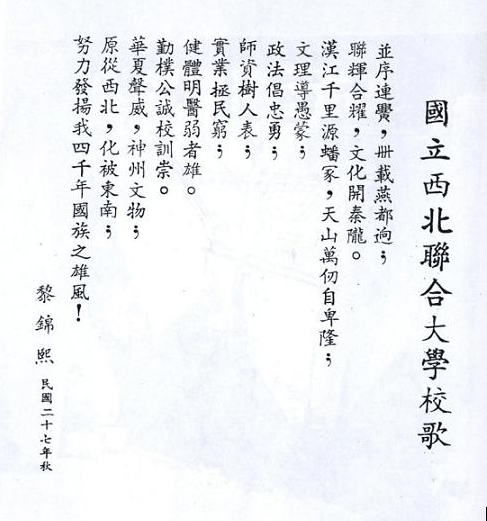 國立西北聯合大學校歌
並序連黌,卌載燕都迥;
聯輝合耀,文化開秦隴。
漢江千里源蟠冢,天山萬仞自卑隆;
文理導愚蒙;
政法倡忠勇;
師資樹人表;
實業拯民窮;
健體明醫弱者雄。
勤樸公誠校訓崇。
華夏聲威,神州文物;
原從西北,化被東南;
努力發揚我四千年國族之雄風!
黎錦熙 民國二十七年秋